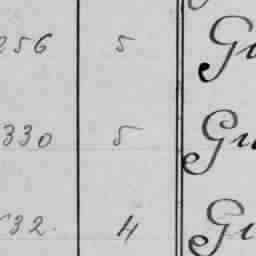 256 5 Gu
330 5 Gu
32 4 Gu